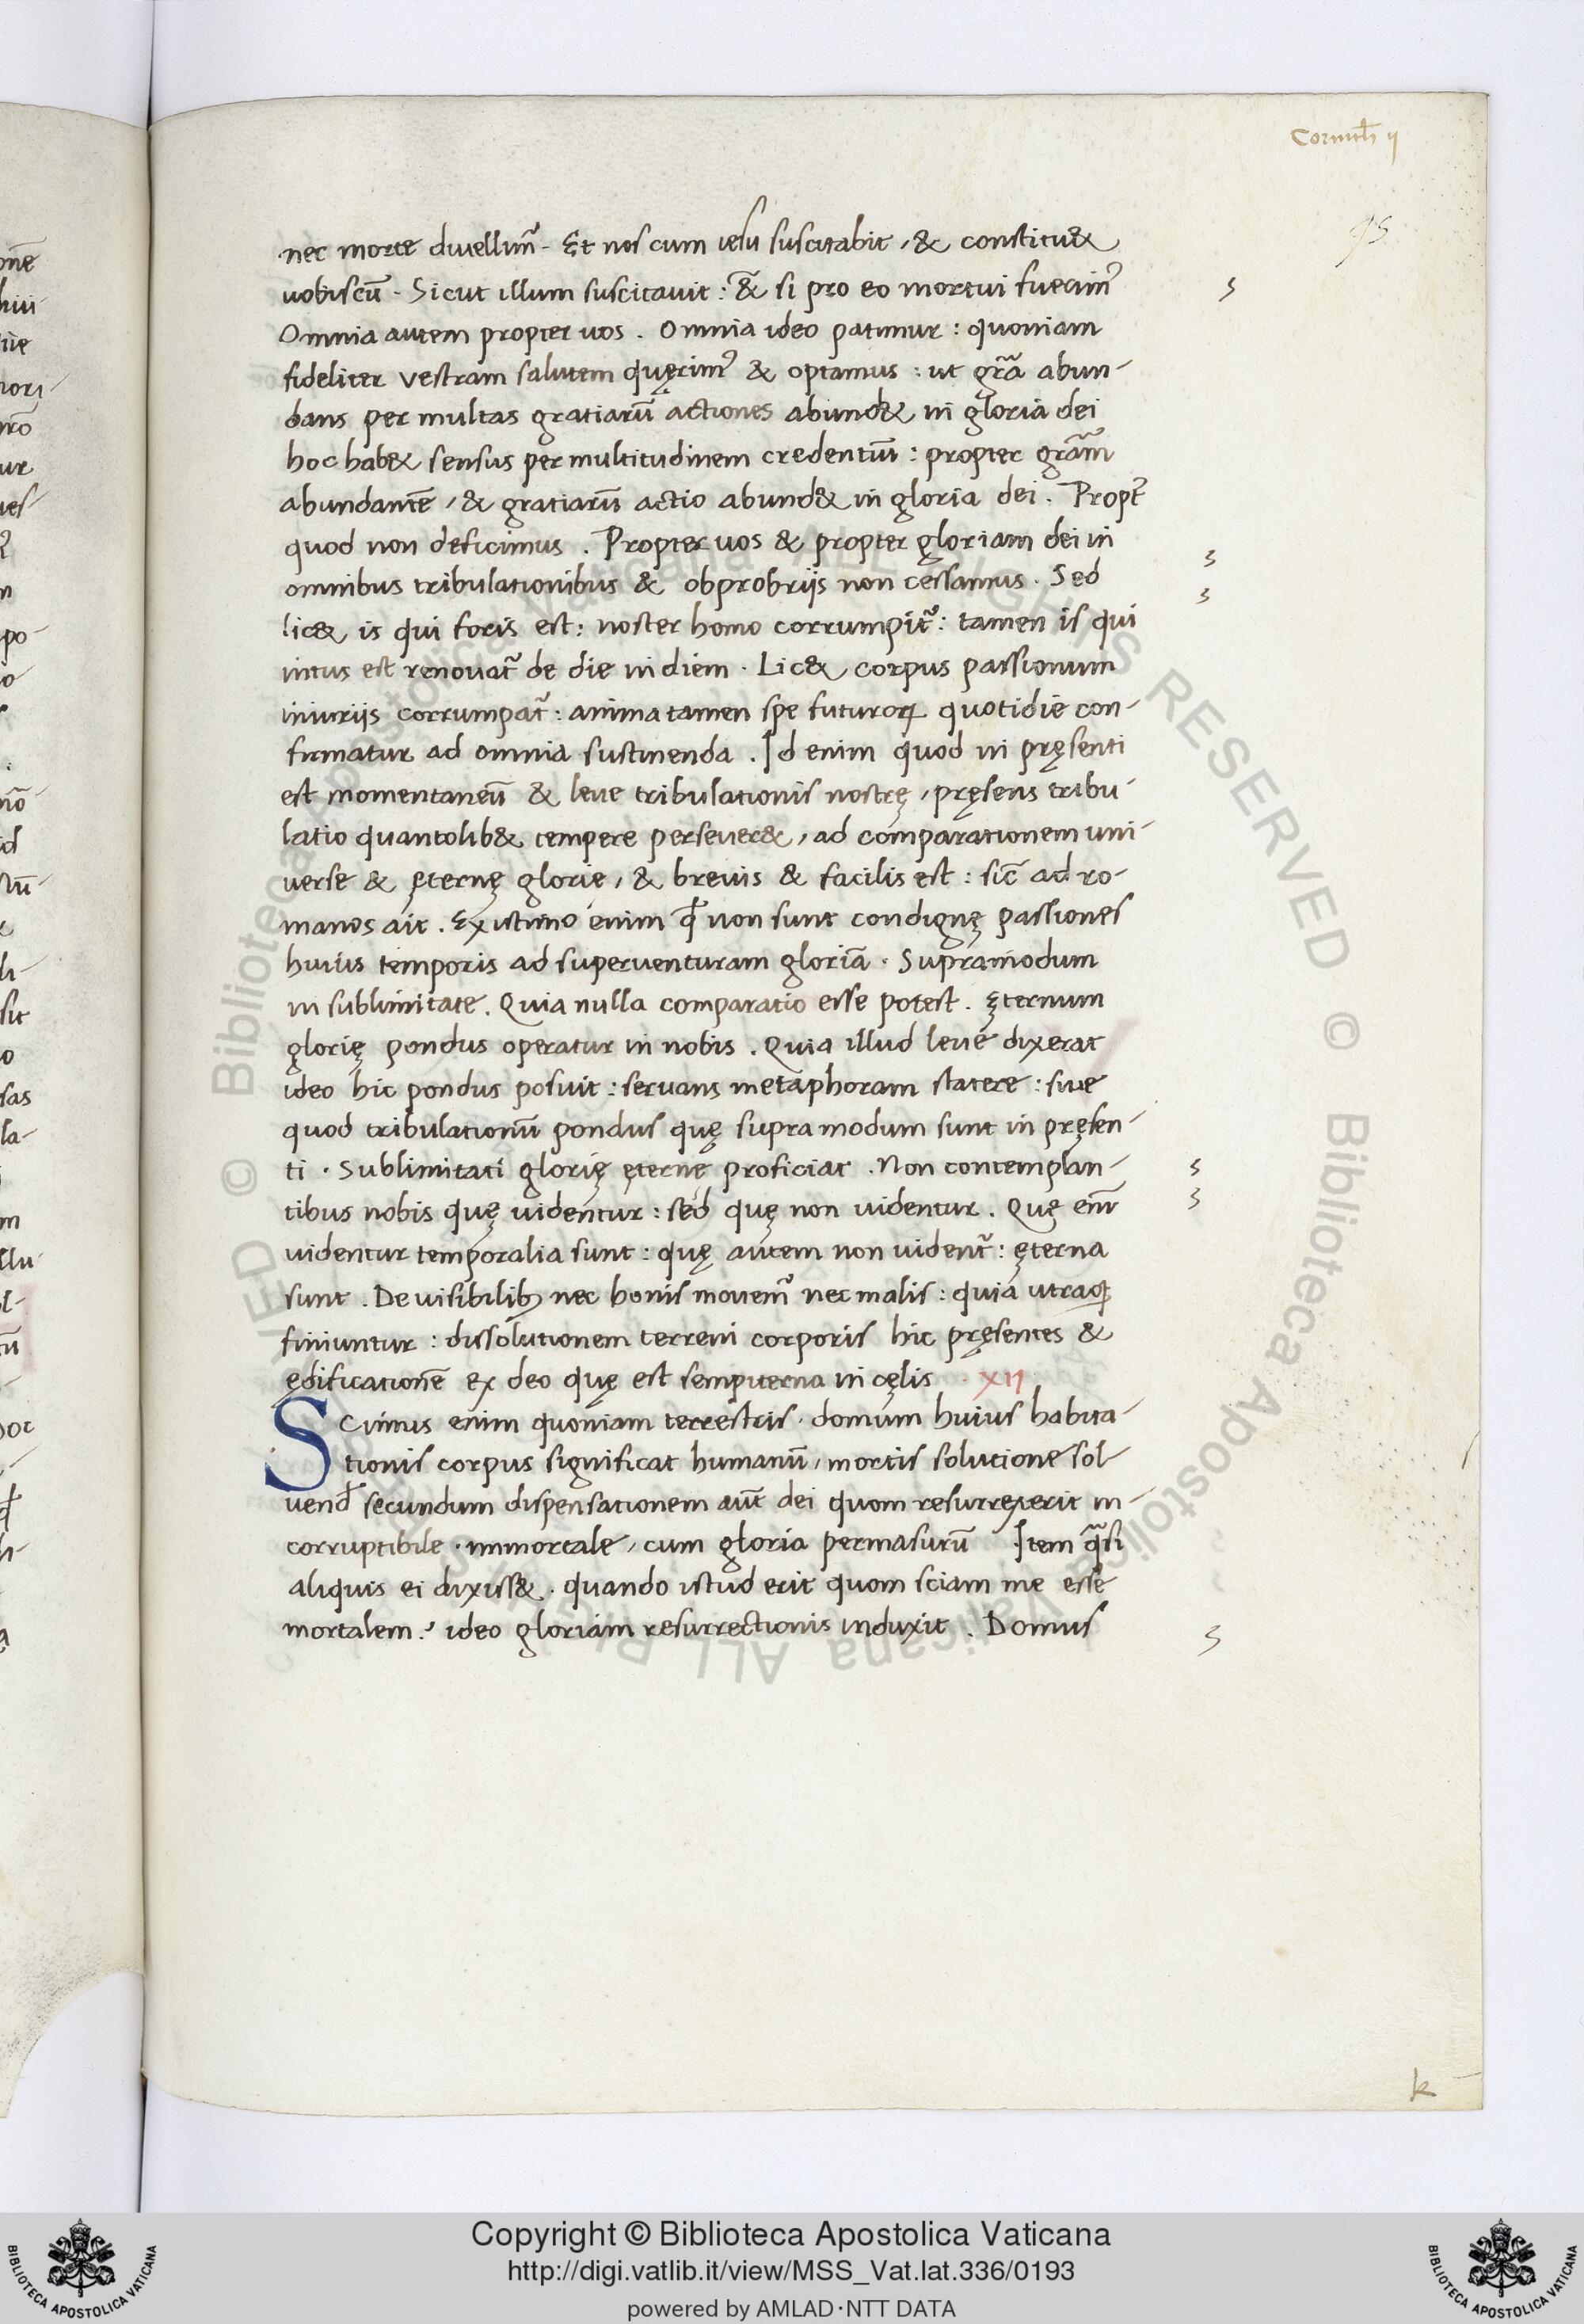 Corinth ij
95
nec morte diuellim̃. Et nos cum iesu suscitabit, & constitu&
uobiscū. Sicut illum suscitauit: &̃ si pro eo mortui fuerim̃
Omnia autem propter uos. Omnia ideo patimur: quoniam
fideliter vestram salutem quęrim̃ & optamus: ut gr̃a abun-
dans per multas gratiarū actiones abund& in gloriā dei
hoc hab& sensus per multitudinem credentiū: propter gr̃am
abundantē, & gratiarū actio abund& in gloria dei. Propt̃
quod non deficimus. Propter uos & propter gloriam dei in
omnibus tribulationibus & obprobrijs non cessamus. Sed
lic& is qui foris est: noster homo corrumpit̃: tamen is qui
intus est renouat̃ de die in diem. Lic& corpus passionum
iniurijs corrumpat̃: anima tamen spe futuroꝝ quotidie con-
firmatur ad omnia sustinenda. Id enim quod in pręsenti
est momentaneū & leue tribulationis nostrę, pręsens tribu-
latio quantolib& tempere perseuer&, ad comparationem uni-
uerse & ęternę glorie, & breuis & facilis est: sic̃ ad ro-
manos ait. Existimo enim ꝙ non sunt condignę passiones
huius temporis ad superuenturam gloriā. Supramodum
in sublimitate. Quia nulla comparatio esse potest. Ęternum
glorię pondus operatur in nobis. Quia illud leue dixerat
ideo hic pondus posuit: seruans metaphoram statere: siue
quod tribulationū pondus quę supra modum sunt in pręsen-
ti. Sublimitati glorię ęterne proficiat. Non contemplan-
tibus nobis quę uidentur: sed quę non uidentur. Quę enī
uidentur temporalia sunt: quę autem non uident̃: ęterna
sunt. De uisibilibꝫ nec bonis mouem̃ nec malis: quia utraqꝫ
finiuntur: dissolutionem terreni corporis hic pręsentes &
ędificationē ex deo quę est sempiterna in cęlis XII
Scimus enim quoniam terrestris. domum huius habita-
tionis corpus significat humanū, mortis solutione sol-
uend̃ secundum dispensationem aut̃ dei quom resurrexerit in-
corruptibile. immortale, cum gloria permasurū Item q̃si
aliquis ei dixiss&. quando istud erit quom sciam me esse
mortalem? ideo gloriam resurrectionis induxit. Domus
k
Copyright © Biblioteca Apostolica Vaticana
http://digi.vatlib.it/view/MSS_Vat.lat.336/0193
powered by AMLAD·NTT DATA